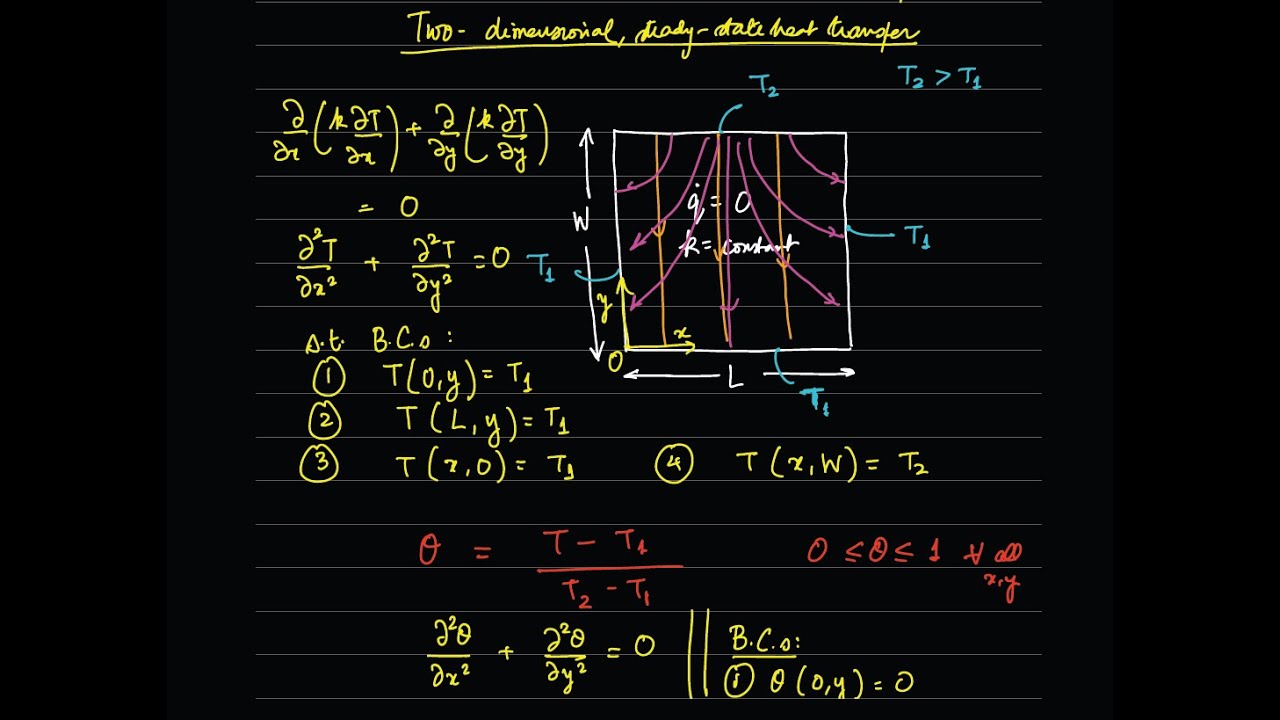 Two-dimensional, steady-state heat transfer
T₂ > T₁
T₂
∂/∂x (k ∂T/∂x) + ∂/∂y (k ∂T/∂y)
= 0
∂²T/∂x² + ∂²T/∂y² = 0
W
q̇ = 0
k = constant
T₁
T₁
y
x
O
L
T₁
s.t. B.C.s :
① T(0,y) = T₁
② T(L,y) = T₁
③ T(x,0) = T₁
④ T(x,W) = T₂
θ = (T - T₁)/(T₂ - T₁)
0 ≤ θ ≤ 1 ∀ all x,y
∂²θ/∂x² + ∂²θ/∂y² = 0
B.C.s:
① θ(0,y) = 0